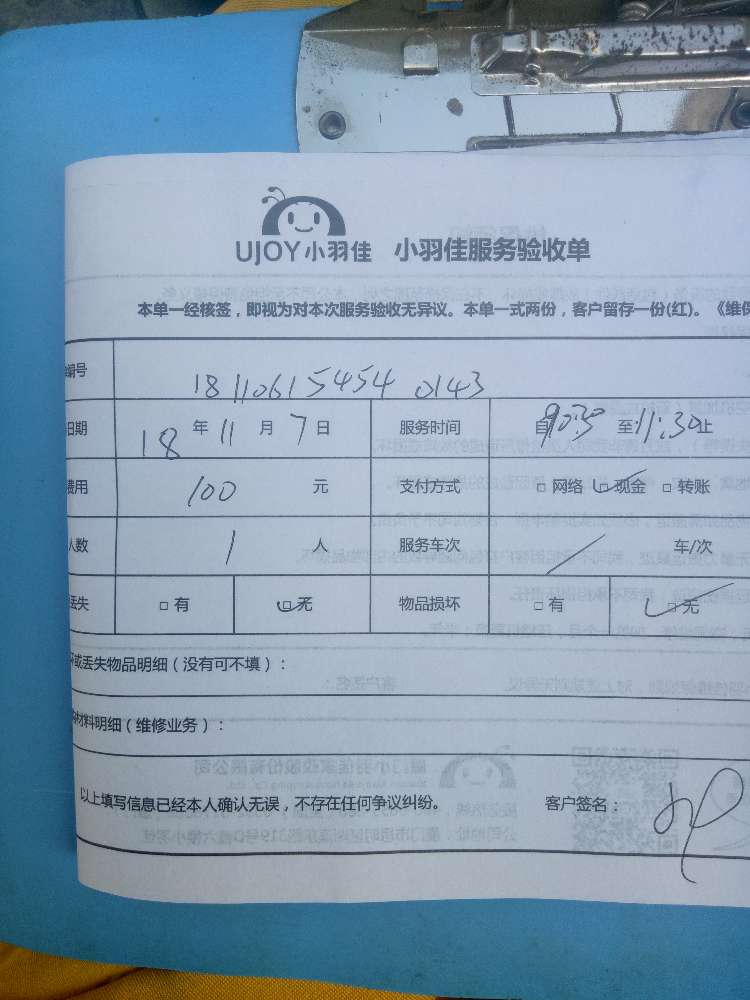 UJOY小羽佳 小羽佳服务验收单
本单一经核签，即视为对本次服务验收无异议。本单一式两份，客户留存一份(红)。《维保
编号 18110615454 0143
日期 18年11月7日 服务时间 自 至11:30止
费用 100元 支付方式 □网络 □现金 □转账
人数 1人 服务车次 / 车/次
丢失 □有 □无 物品损坏 □有 □无
坏或丢失物品明细（没有可不填）：
材料明细（维修业务）：
以上填写信息已经本人确认无误，不存在任何争议纠纷。 客户签名：